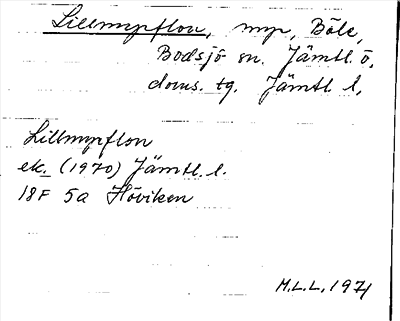 Lillmypflon, myr, Böle,
Bodsjö sn. Jämtl. ö.
doms. tg. Jämtl. l.
Lillmypflon
ek. (1970) Jämtl. l.
18F 5a Höviken
M.L.L. 1971